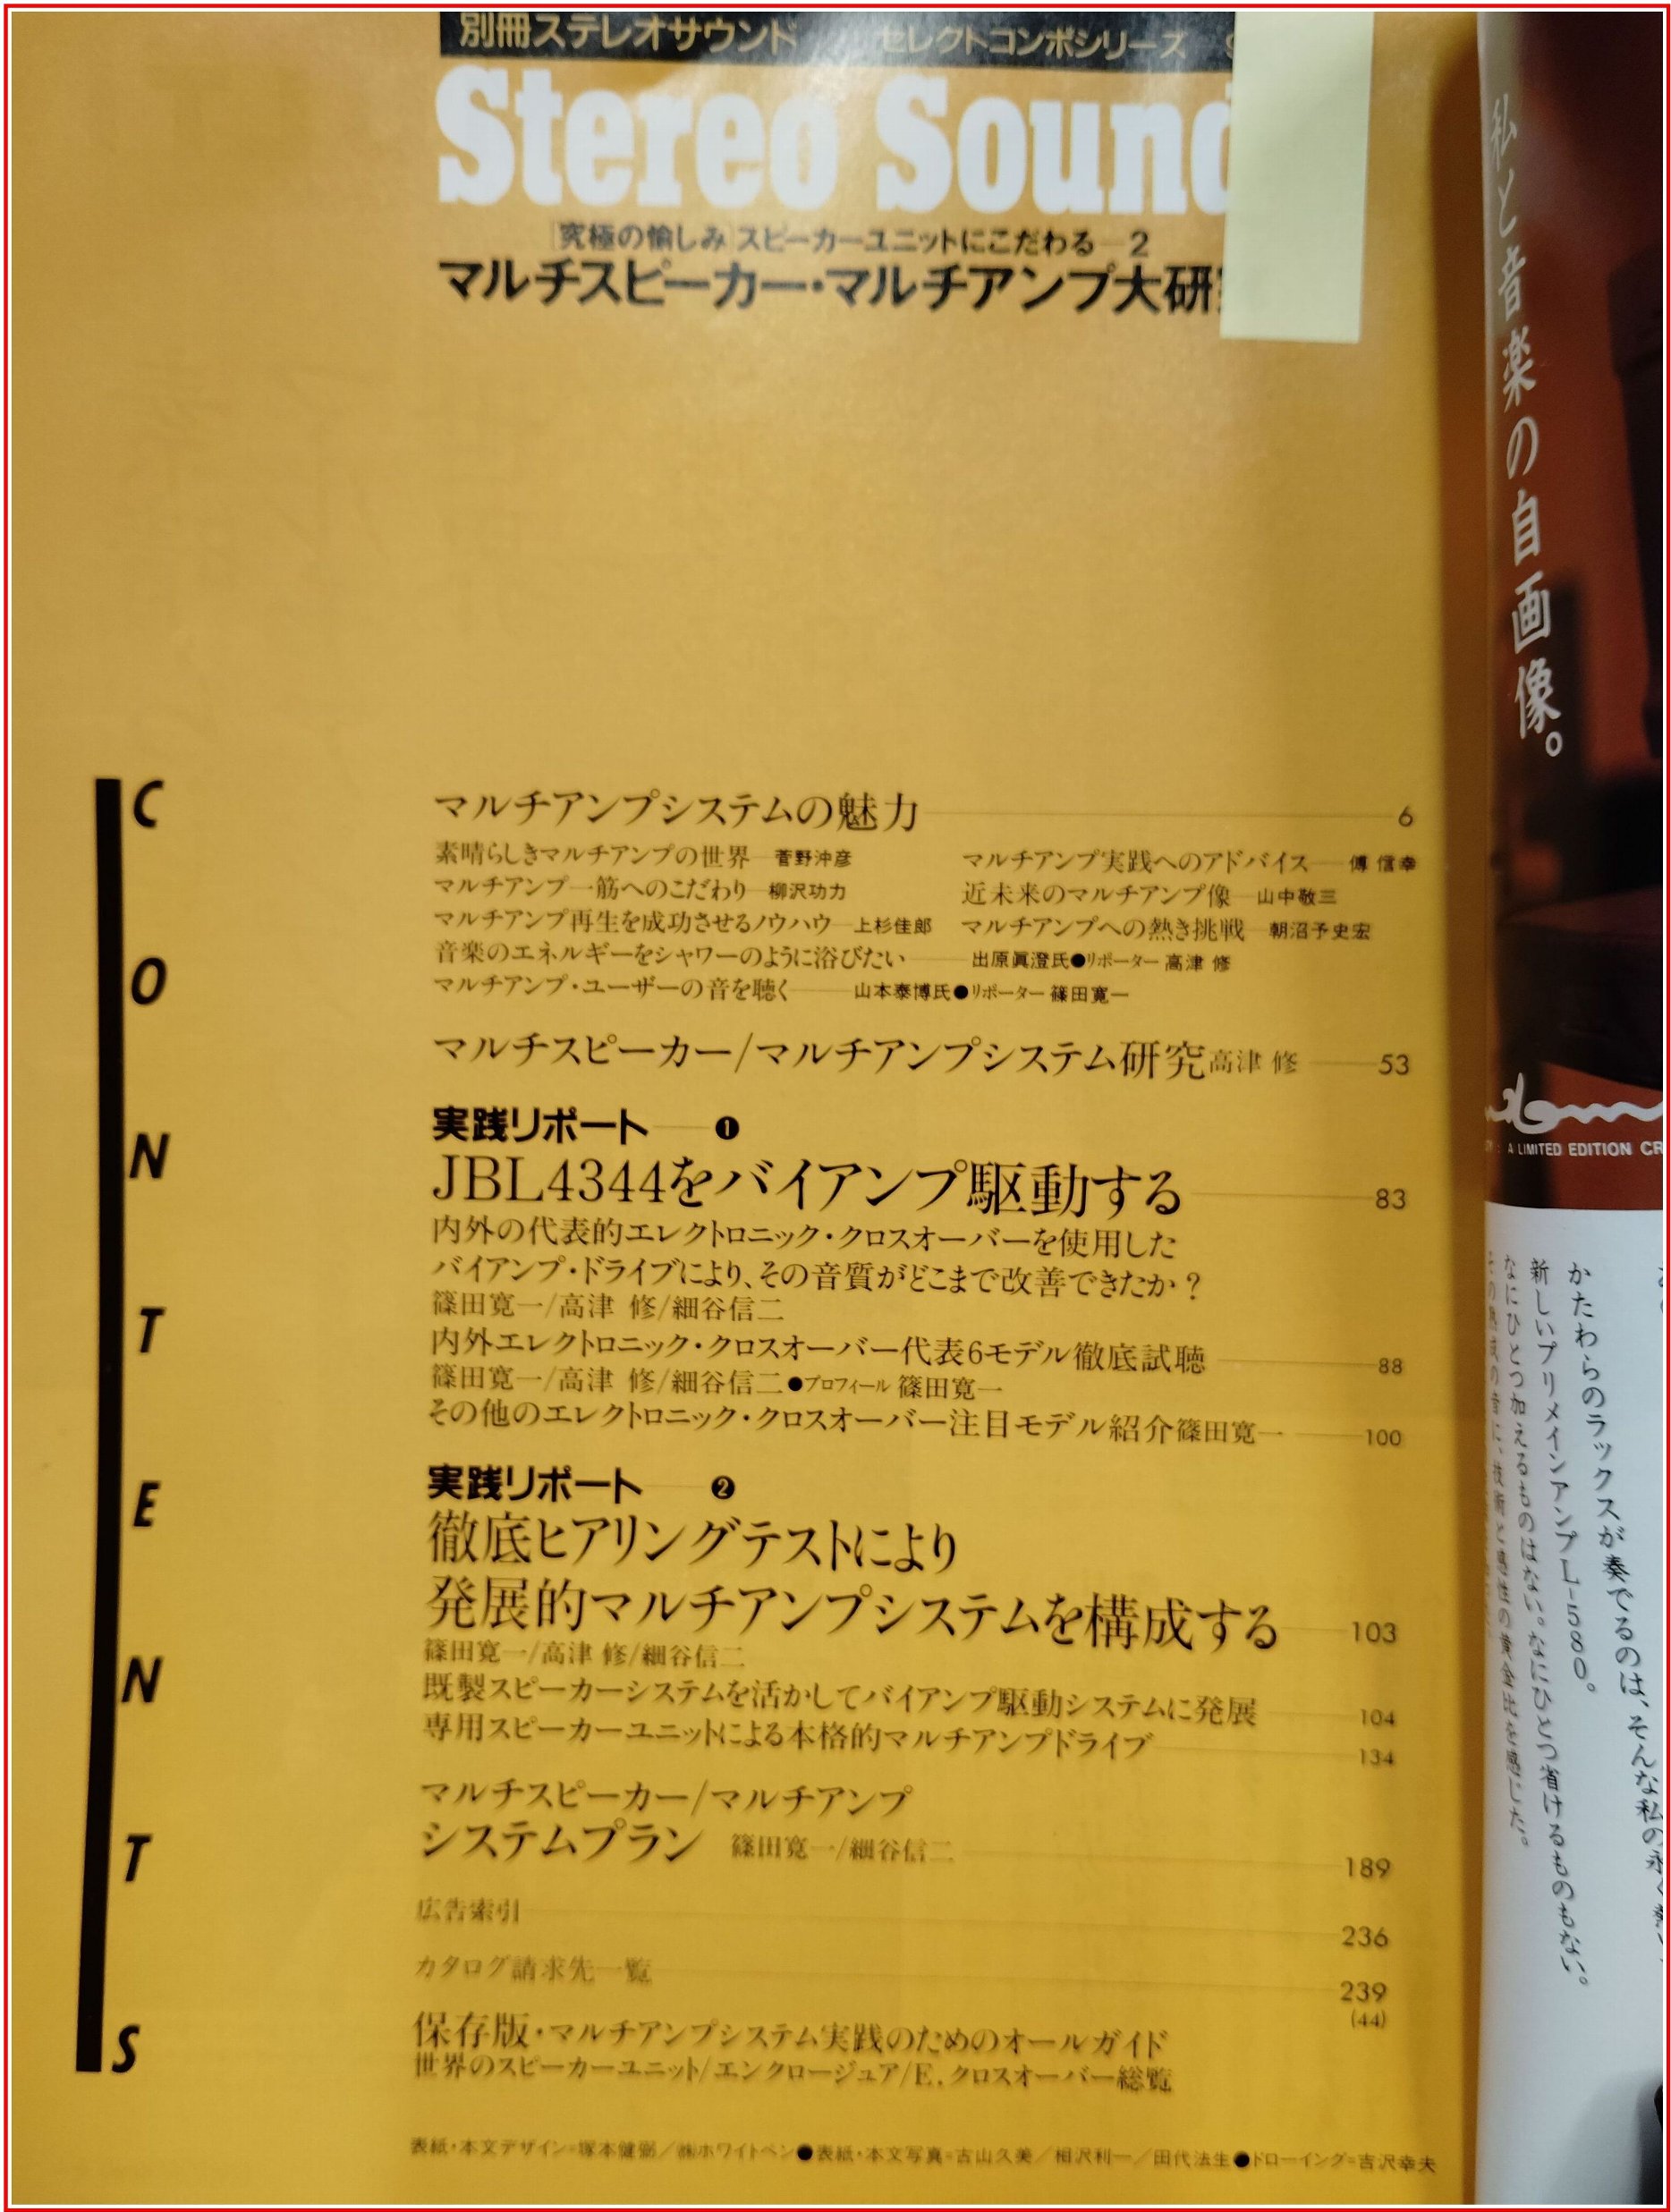 別冊ステレオサウンド セレクトコンポシリーズ
Stereo Sound
[究極の愉しみ]スピーカーユニットにこだわる—2
マルチスピーカー・マルチアンプ大研
CONTENTS
マルチアンプシステムの魅力 6
素晴らしきマルチアンプの世界 菅野沖彦
マルチアンプ一筋へのこだわり 柳沢功力
マルチアンプ再生を成功させるノウハウ 上杉佳郎
マルチアンプ実践へのアドバイス 傅 信幸
近未来のマルチアンプ像 山中敬三
マルチアンプへの熱き挑戦 朝沼予史宏
音楽のエネルギーをシャワーのように浴びたい 出原眞澄氏●リポーター 高津 修
マルチアンプ・ユーザーの音を聴く 山本泰博氏●リポーター 篠田寛一
マルチスピーカー/マルチアンプシステム研究 高津 修 53
実践リポート ❶
JBL4344をバイアンプ駆動する 83
内外の代表的エレクトロニック・クロスオーバーを使用した
バイアンプ・ドライブにより、その音質がどこまで改善できたか？
篠田寛一/高津 修/細谷信二
内外エレクトロニック・クロスオーバー代表6モデル徹底試聴 88
篠田寛一/高津 修/細谷信二●プロフィール 篠田寛一
その他のエレクトロニック・クロスオーバー注目モデル紹介 篠田寛一 100
実践リポート ❷
徹底ヒアリングテストにより
発展的マルチアンプシステムを構成する 103
篠田寛一/高津 修/細谷信二
既製スピーカーシステムを活かしてバイアンプ駆動システムに発展 104
専用スピーカーユニットによる本格的マルチアンプドライブ 134
マルチスピーカー/マルチアンプ
システムプラン 篠田寛一/細谷信二 189
広告索引 236
カタログ請求先一覧 239
(44)
保存版・マルチアンプシステム実践のためのオールガイド
世界のスピーカーユニット/エンクロージュア/E.クロスオーバー総覧
表紙・本文デザイン=塚本健弼／㈱ホワイトペン●表紙・本文写真=古山久美／相沢利一／田代法生●ドローイング=吉沢幸夫
私と音楽の自画像。
A LIMITED EDITION CR
かたわらのラックスが奏でるのは、そんな私の永く
新しいプリメインアンプL-580。
なにひとつ加えるものはない。なにひとつ省けるものもない。
その熟成の音に、技術と感性の黄金比を感じた。